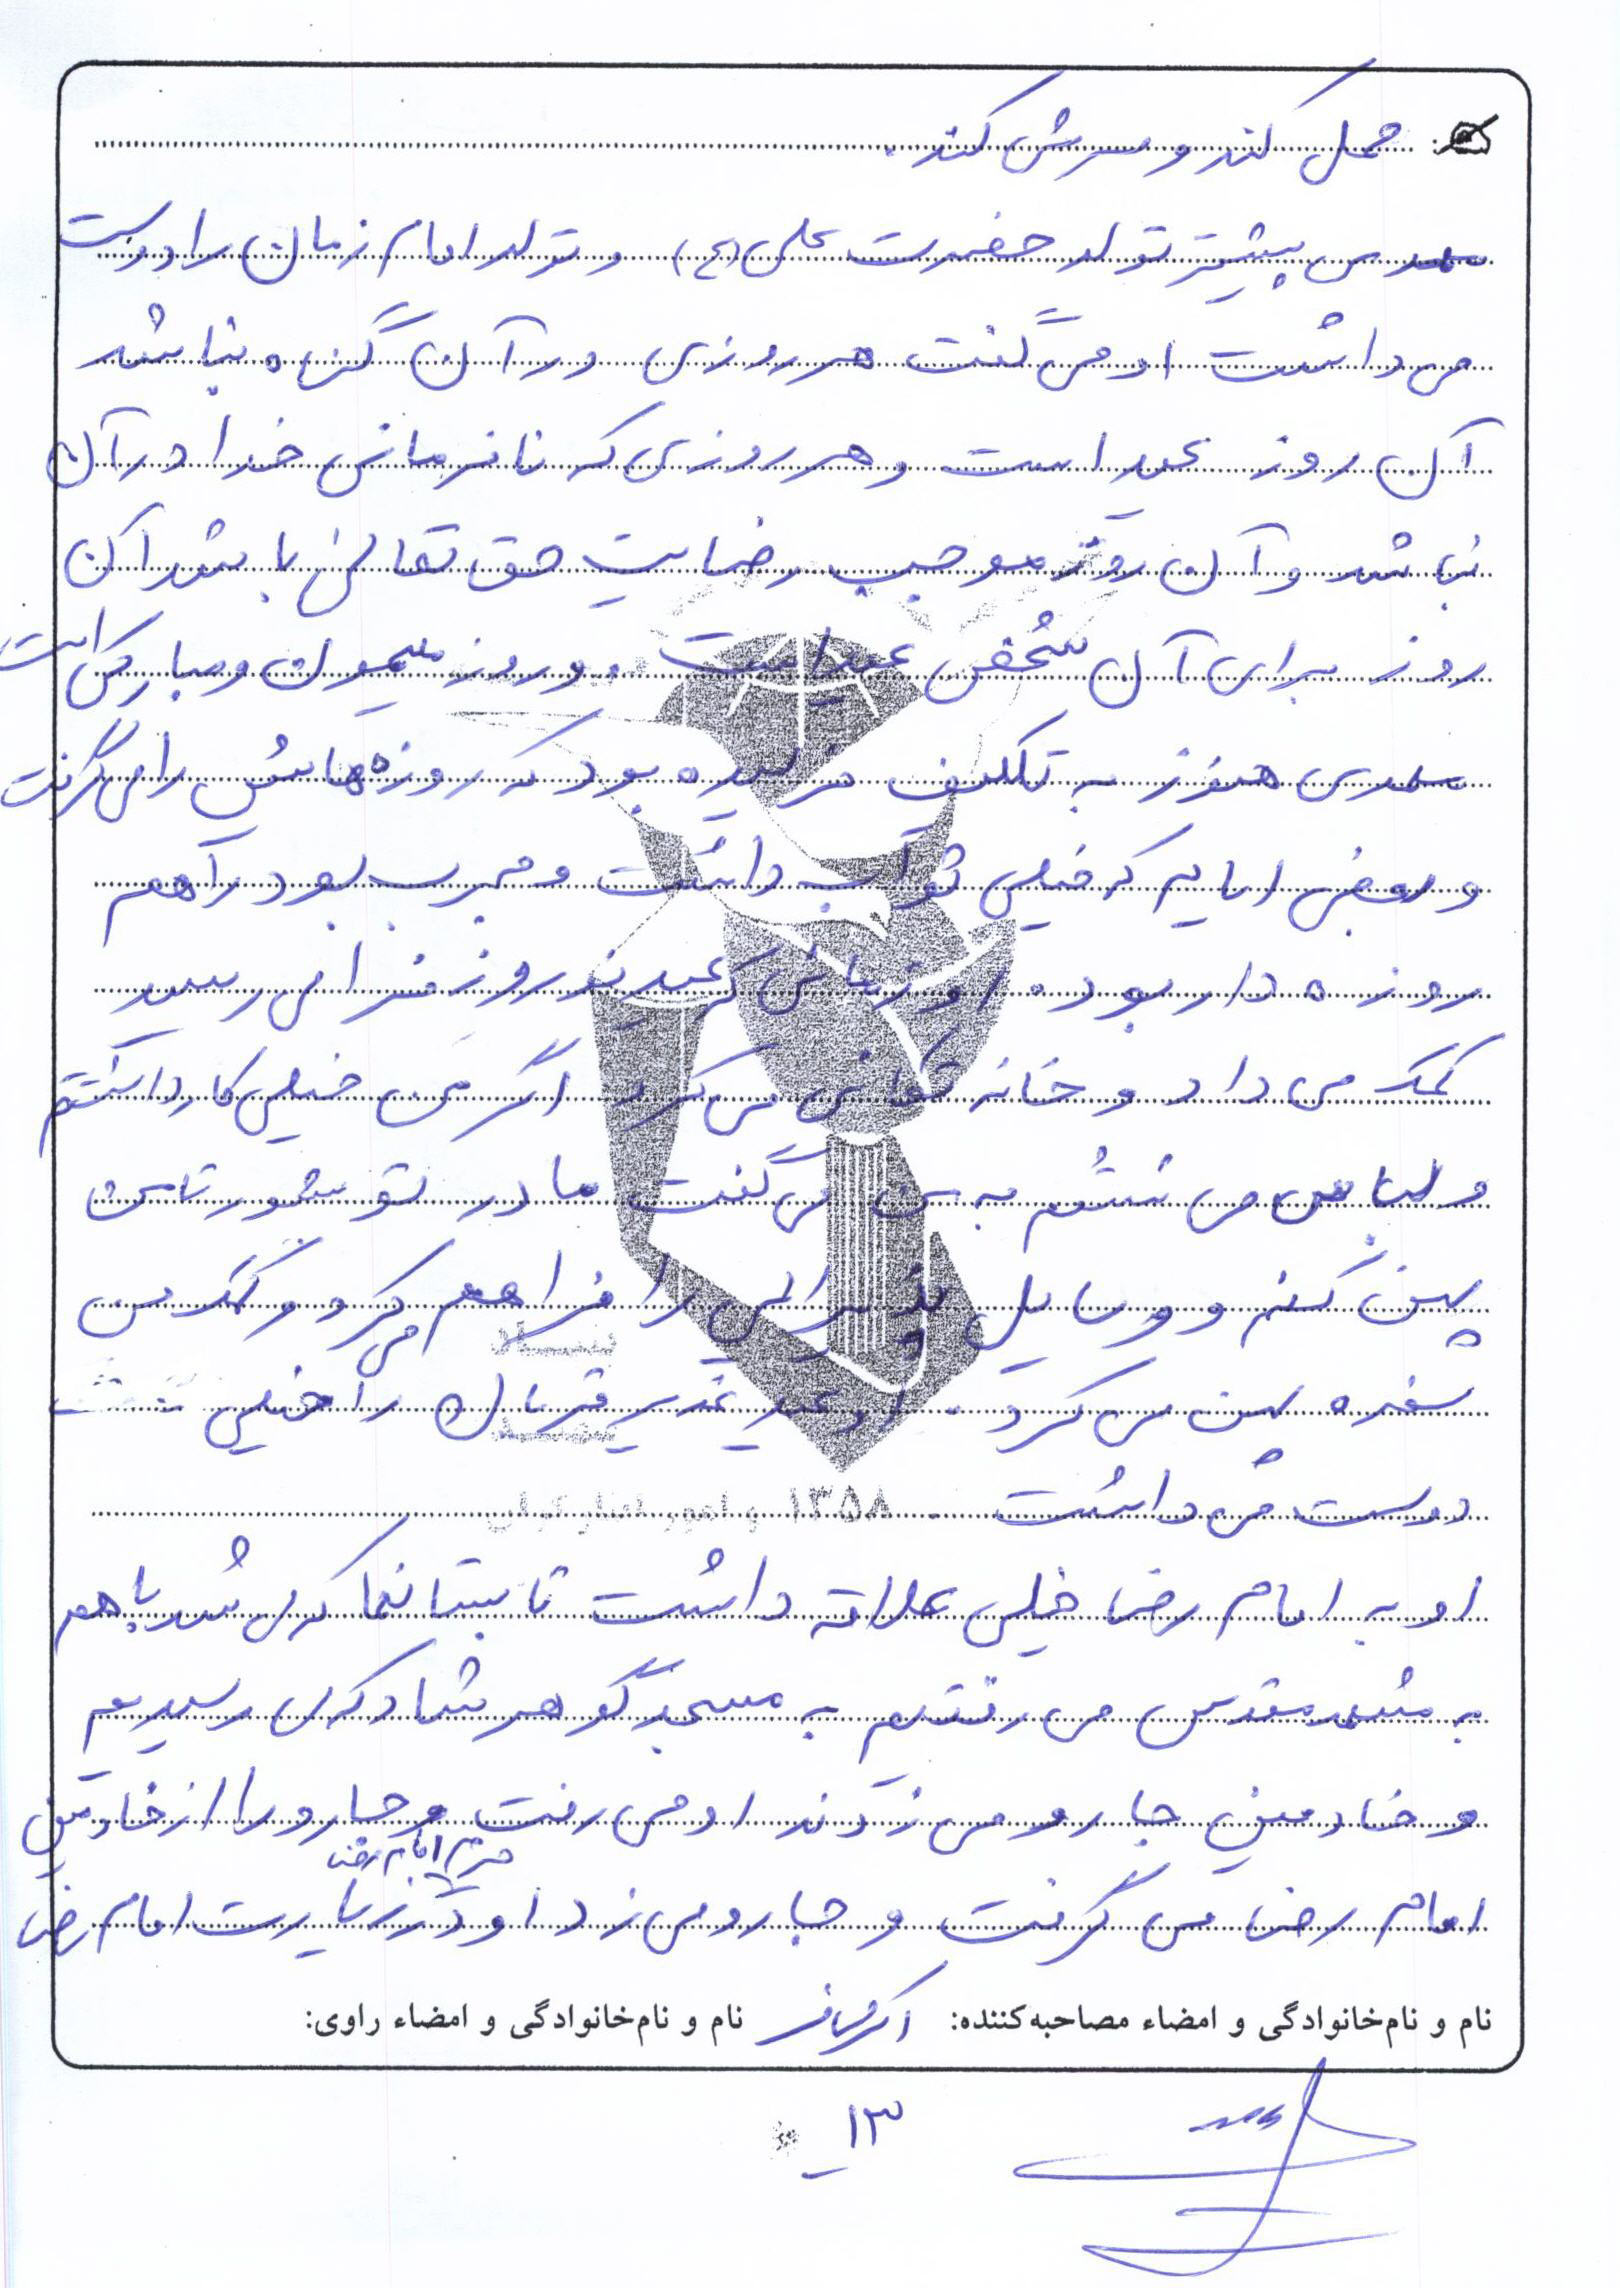 حمل کند و سرش کند.
مهدی بیشتر تولد حضرت علی (ع) و تولد امام زمان را دوست
می داشت او می گفت هر روزی در آن گناه نباشد
آن روز عید است و هر روزی که نافرمانی خدا در آن
نباشد و آن روز موجب رضایت حق تعالی باشد آن
روز برای آن شخص عید است و روز میمون و مبارکی است
مهدی هنوز به تکلیف نرسیده بود که روزه هایش را می گرفت
و بعضی ایام که خیلی ثواب داشت و مجرب بود را هم
روزه دار بود. او زمانی که عید نوروز فرا می رسید
کمک می داد و خانه تکانی می کرد اگر من خیلی کار داشتم
و لباس می شستم به من می گفت مادر تو بشور تا من
پهن کنم و وسایل پذیرایی را فراهم می کرد و کمک می
سفره پهن می کرد. او عید غدیر قربان را خیلی
دوست می داشت
۱۳۵۸
او به امام رضا خیلی علاقه داشت تابستانها که می شد با هم
به مشهد مقدس می رفتیم به مسجد گوهرشاد که می رسیدیم
و خادمین جارو می زدند او می رفت و جارو را از خادمین
حرم امام رضا
امام رضا می گرفت و جارو می زد او در زیارت امام رضا
نام و نام‌خانوادگی و امضاء مصاحبه‌کننده: نام و نام‌خانوادگی و امضاء راوی:
۱۳